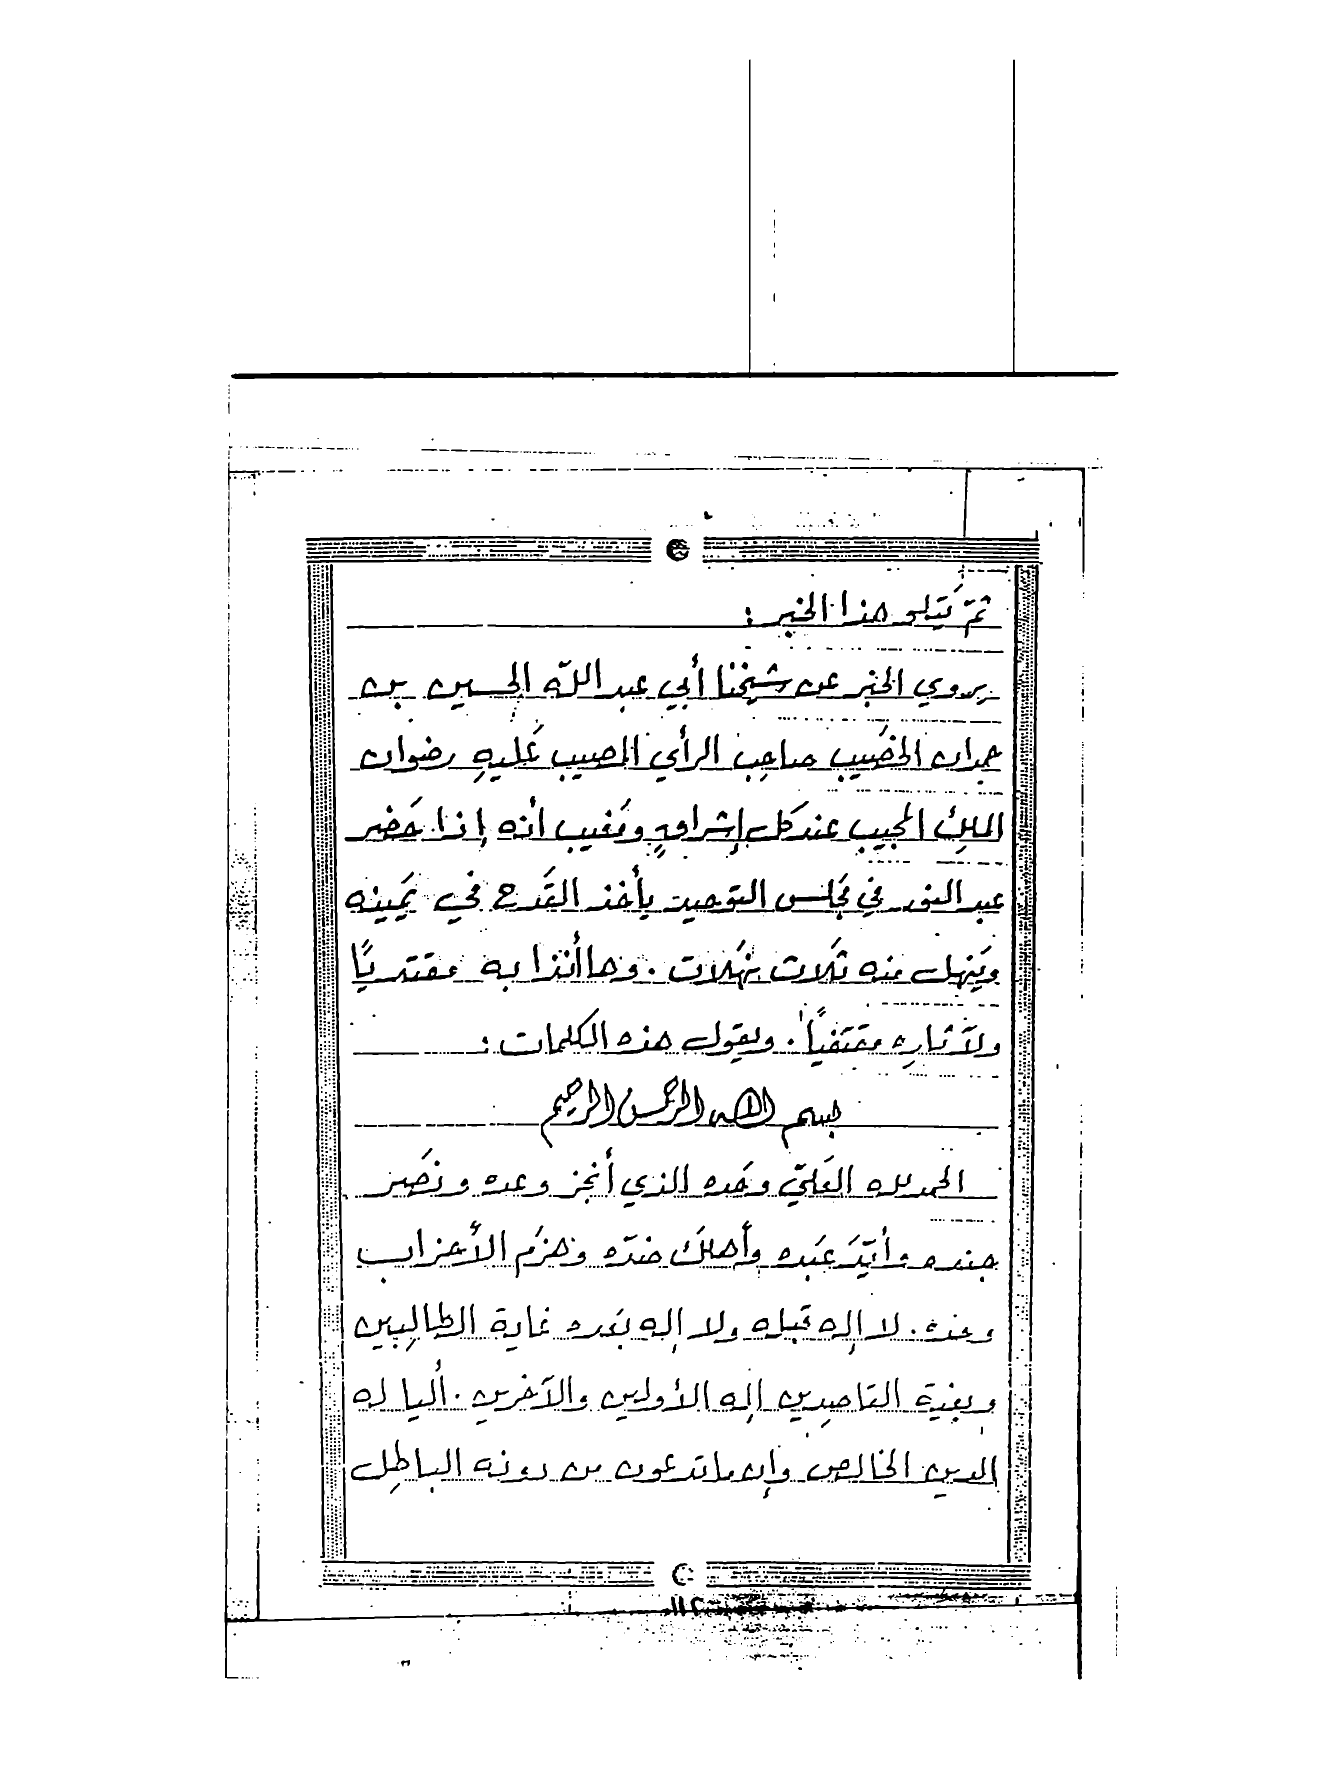 ثمّ يَتلو هذا الخبر :
يروي الخبر عن شيخنا أبي عبد اللّه الحسين بن
حمدان الخصَيب صاحِب الرأي المصيب عَليهِ رضوان
الملِك المجيب عند كل إشراقٍ ومَغيب أنه إذا حَضر
عبد النور في مَجلس التوحيد يأخذ القَدح في يَمينه
ويَنهل منه ثَلاث نَهَلات . وها أنذا به مقتديًا
ولآثاره مقتفياً . ويقول هذه الكلمات :
بسم الله الرحمن الرحيم
الحمد لله العَليّ وحَده الذي أنجز وعده ونصَر
جنده وأيّدَ عَبده وأهلكَ ضدّه وهزَم الأحزاب
وحده . لا إله قبله ولا إله بَعده غاية الطالِبين
وبغية القاصِدين إله الأولين والآخرين . ألا له
الدين الخالص وإن ما تدعون من دونه الباطِل
١١٢